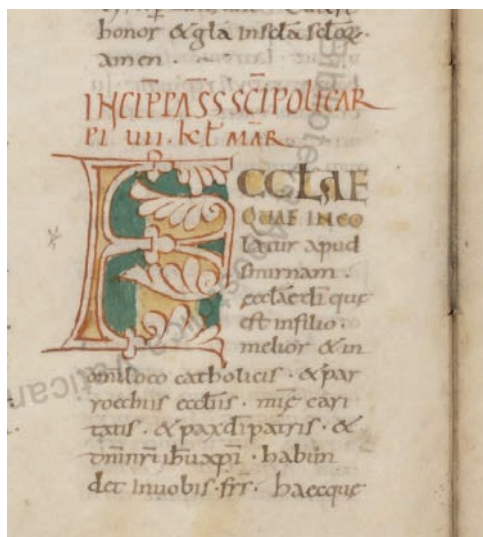 honor & gła Inscła scłoꝝ.
amen.
INCIP̅ PĀSS SC̅I POLICAR
PI VII. kƚ MAR̅
ECCLAE
QUAE INCO
latur apud
smirnam.
eccłae dī que
est in filio.
melior & in
omī loco catholicis. & par
rocchiis eccłiis. mīę cari
tatis. & pax dī patris. &
dn̄i nr̄i ih̅u xp̅i. habun
det In uobis. fr̄s. haecque